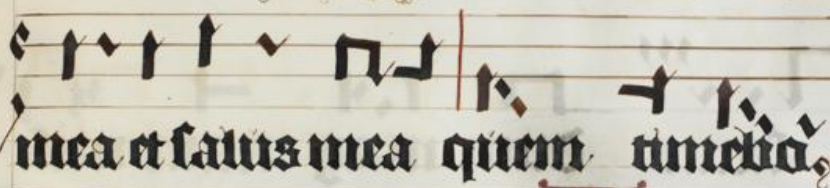 mea et salus mea quem timebo